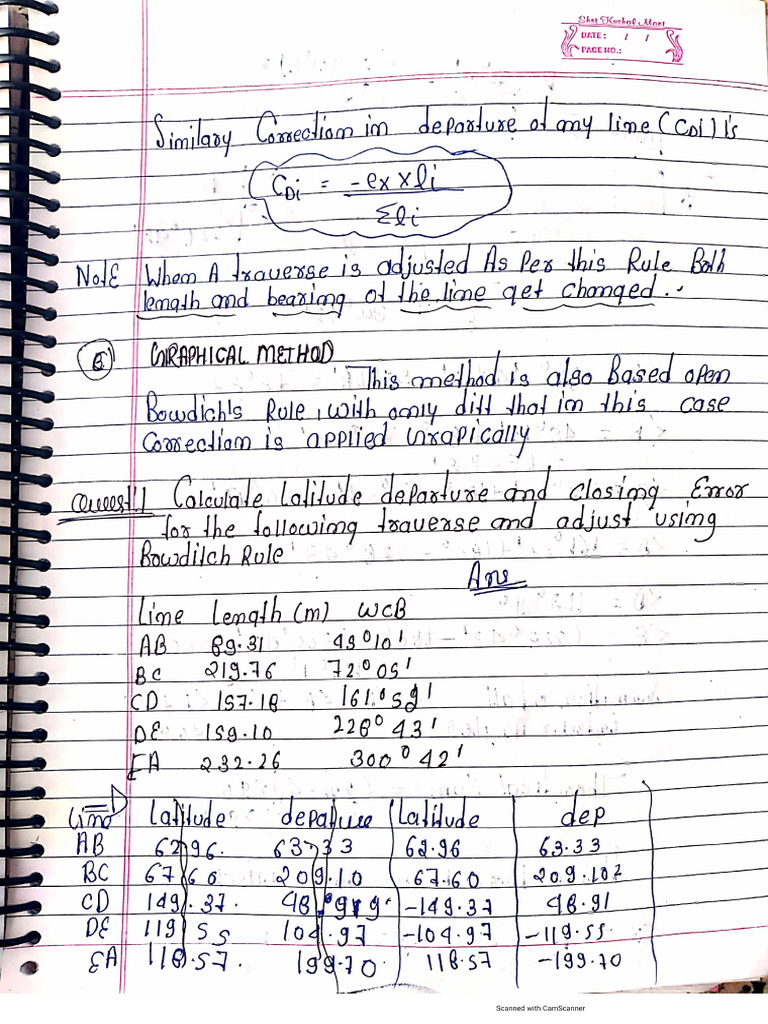 Shri Kushal Mani
DATE: / /
PAGE NO.:
Similary Correction in departure of any line (CDi) is
CDi = -ex x li
Σli
NotE When A traverse is adjusted As Per this Rule Both
length and bearing of the line get changed.
5 GRAPHICAL METHOD
This method is also Based open
Bowdich's Rule, with only diff that in this case
Correction is applied Grapically
Quest:1 Calculate Latitude departure and closing Error
for the following traverse and adjust using
Bowditch Rule
Ans
line length (m) WCB
AB 89.31 45°10'
BC 219.76 72°05'
CD 157.18 161°52'
DE 159.10 228°43'
EA 232.26 300°42'
Line latitude depature Latitude dep
AB 62.96. 63.33 62.96 63.33
BC 67.60 209.10 67.60 209.102
CD 149.37. 48.919. -149.37 48.91
DE 119.55 104.97 -104.97 -119.55
EA 118.57. 199.70 118.57 -199.70
Scanned with CamScanner